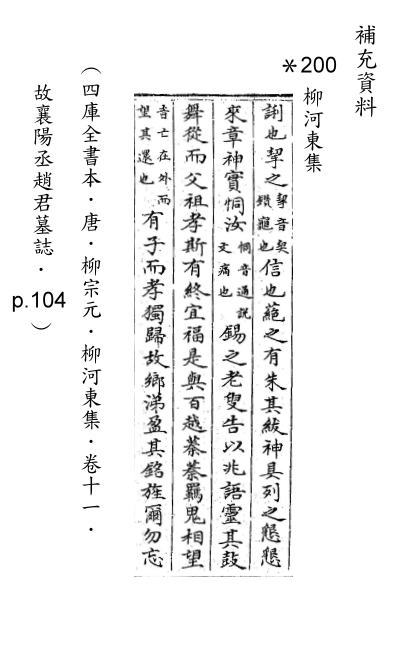 補充資料
＊200 柳河東集
誗也挈之挈音契鑽龜也信也蕝之有朱其紱神具列之懇懇
來章神實恫汝恫音通說文痛也錫之老叟告以兆語靈其鼓
舞從而父祖孝斯有終宜福是與百越蓁蓁羈鬼相望
音亡在外而望其還也有子而孝獨歸故鄉涕盈其銘旌爾勿忘
（四庫全書本・唐・柳宗元・柳河東集・卷十一・
故襄陽丞趙君墓誌・p.104）